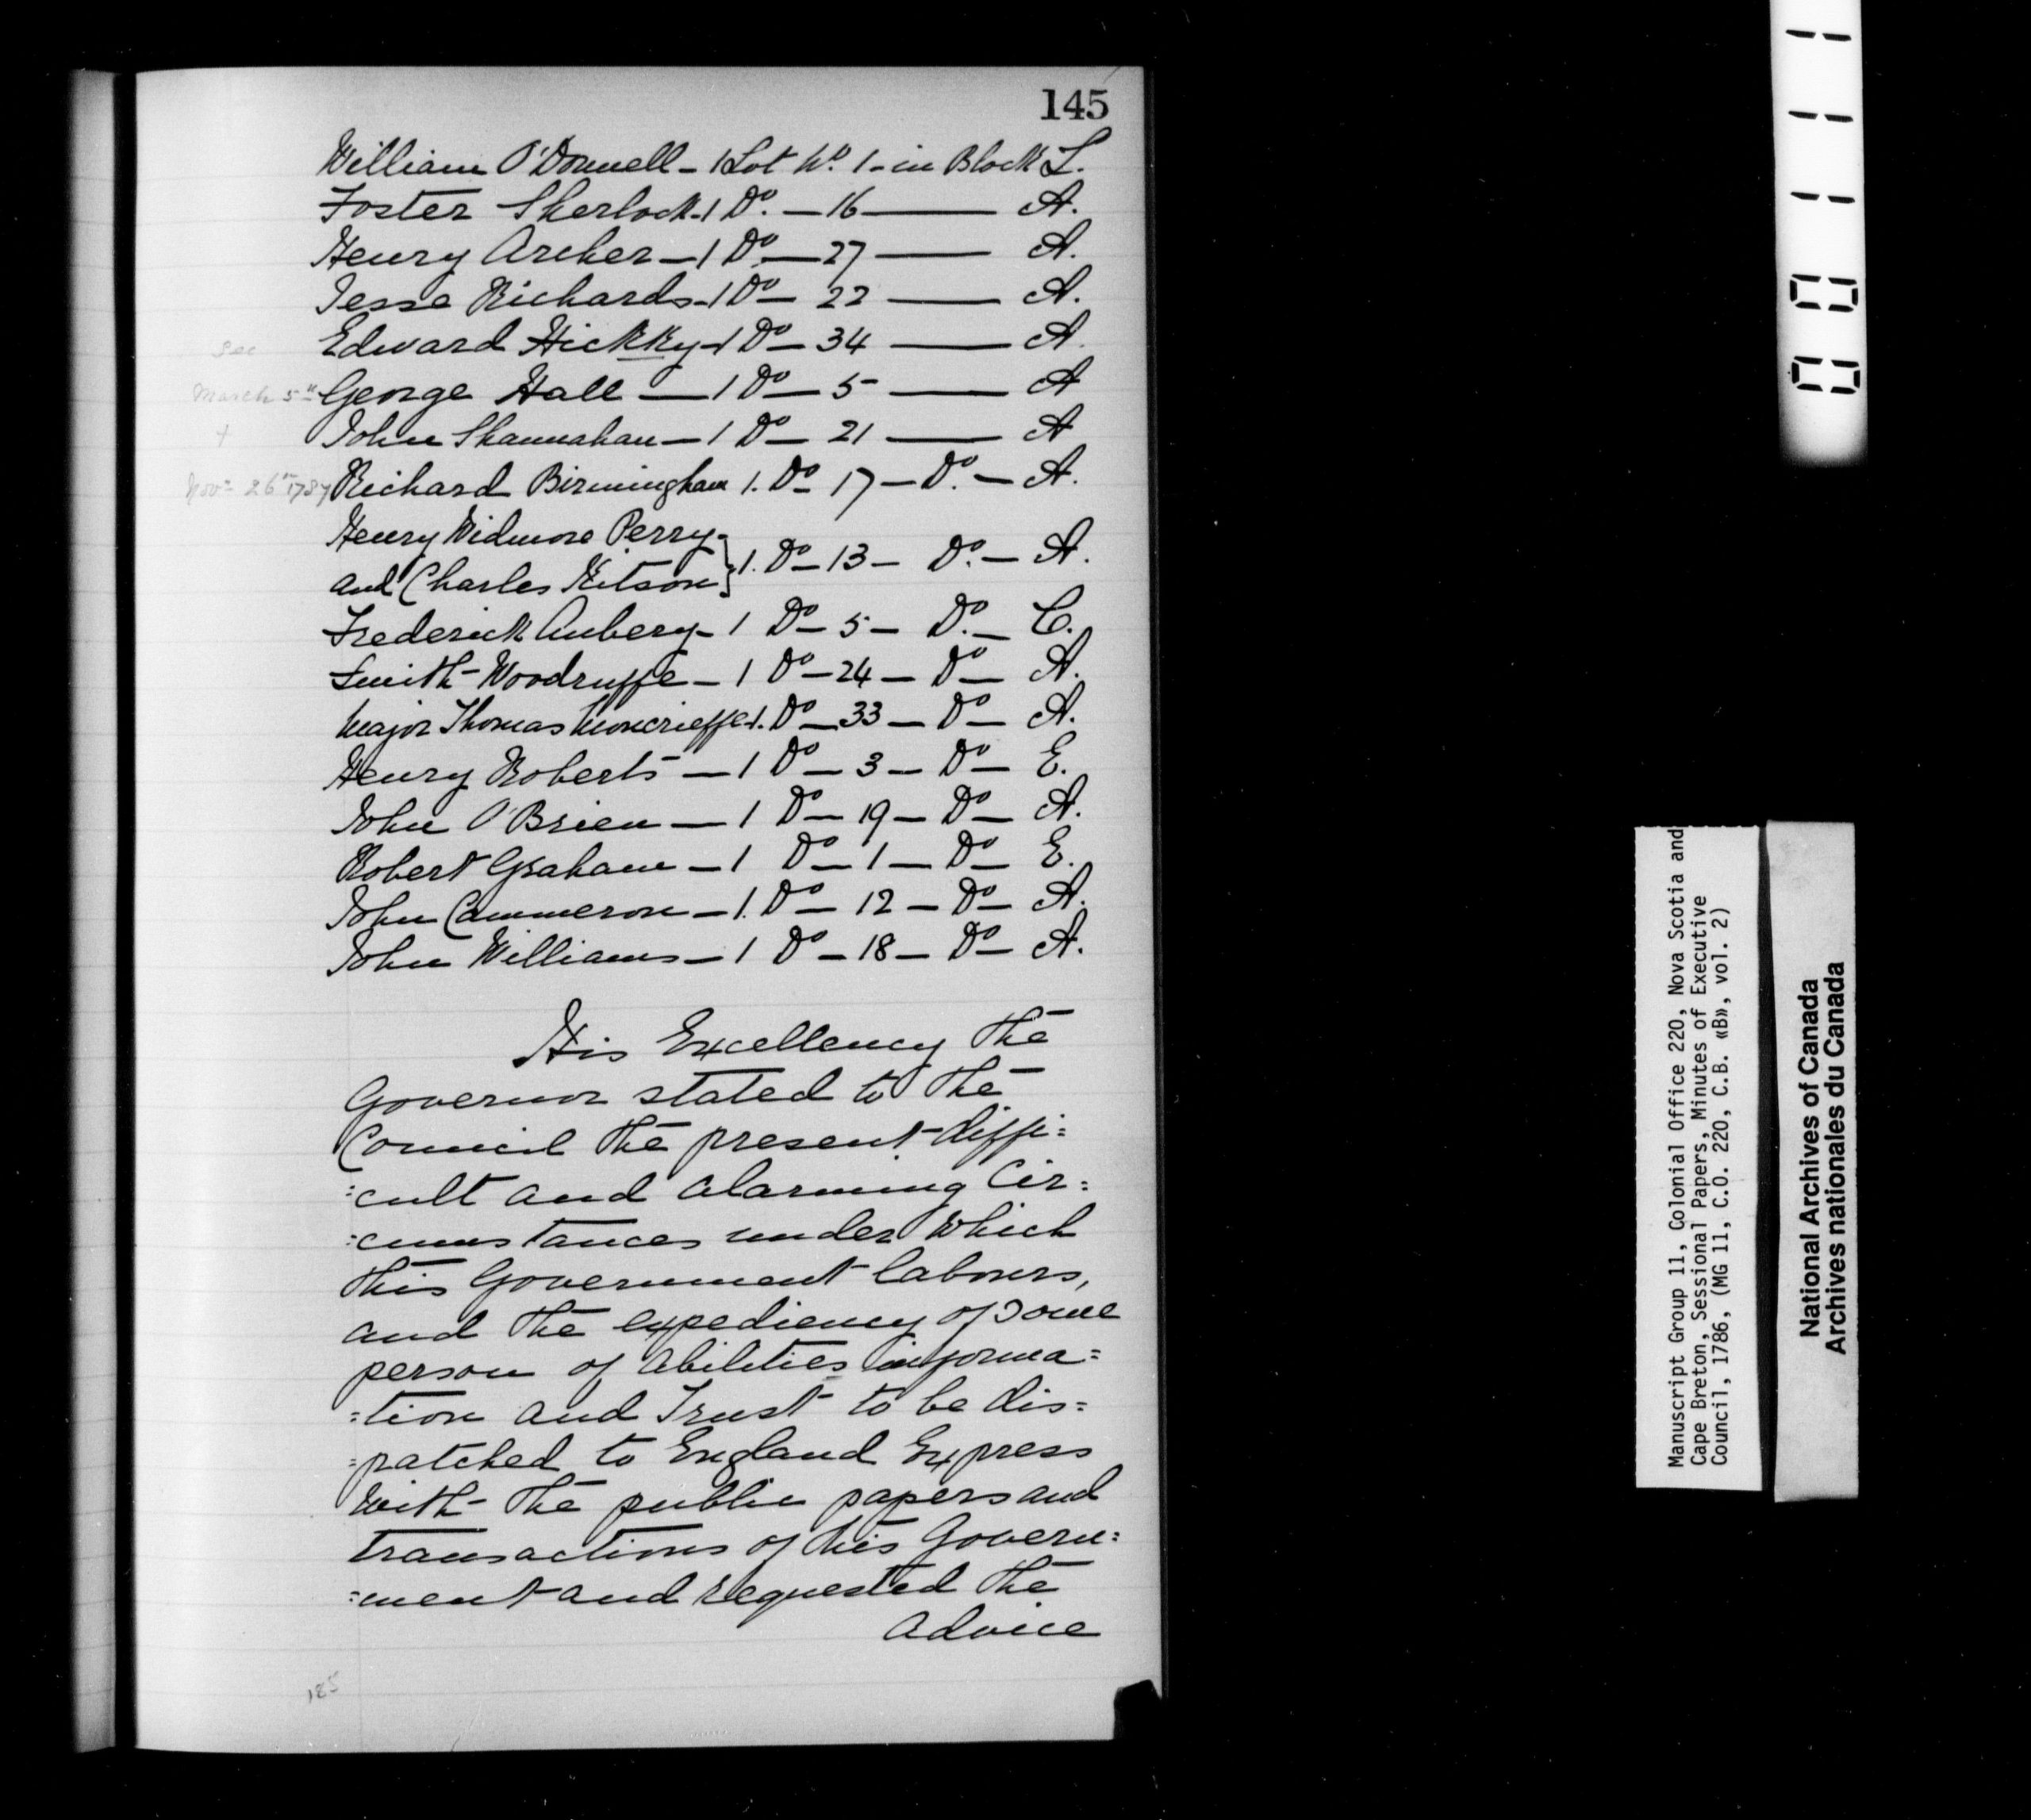 145
William O'Donnell - 1 Lot No. 1 - in Block L.
Foster Sherlock - 1 Do. - 16 - A.
Henry Archer - 1 Do. - 27 - A.
Jesse Richards - 1 Do - 22 - A.
Edward Hickky - 1 Do - 34 - A.
See
George Hall - 1 Do - 5 - A
March 5th
John Shannahan - 1 Do - 21 - A
+
Richard Birmingham 1. Do - 17 - Do. - A.
Novr 26th 1787
Henry Widmore Perry
and Charles Kitson } 1. Do - 13 - Do. - A.
Frederick Aubery - 1 Do - 5 - Do. - C.
Smith Woodruffe - 1 Do - 24 - Do - A.
Major Thomas Moncrieffe - 1. Do - 33 - Do - A.
Henry Roberts - 1 Do - 3 - Do - E.
John O'Brien - 1 Do - 19 - Do - A.
Robert Graham - 1 Do - 1 - Do - E.
John Cammeron - 1. Do - 12 - Do - A.
John Williams - 1 Do - 18 - Do - A.
His Excellency the
Governor stated to the
Council the present diffi=
=cult and alarming Cir=
=cumstances under which
this Government labours,
and the expediency of some
person of abilities informa=
=tion and Trust to be dis=
=patched to England Express
with the public papers and
transactions of this Govern=
=ment and requested the
advice
185
Manuscript Group 11, Colonial Office 220, Nova Scotia and
Cape Breton, Sessional Papers, Minutes of Executive
Council, 1786, (MG 11, C.O. 220, C.B. «B», vol. 2)
National Archives of Canada
Archives nationales du Canada